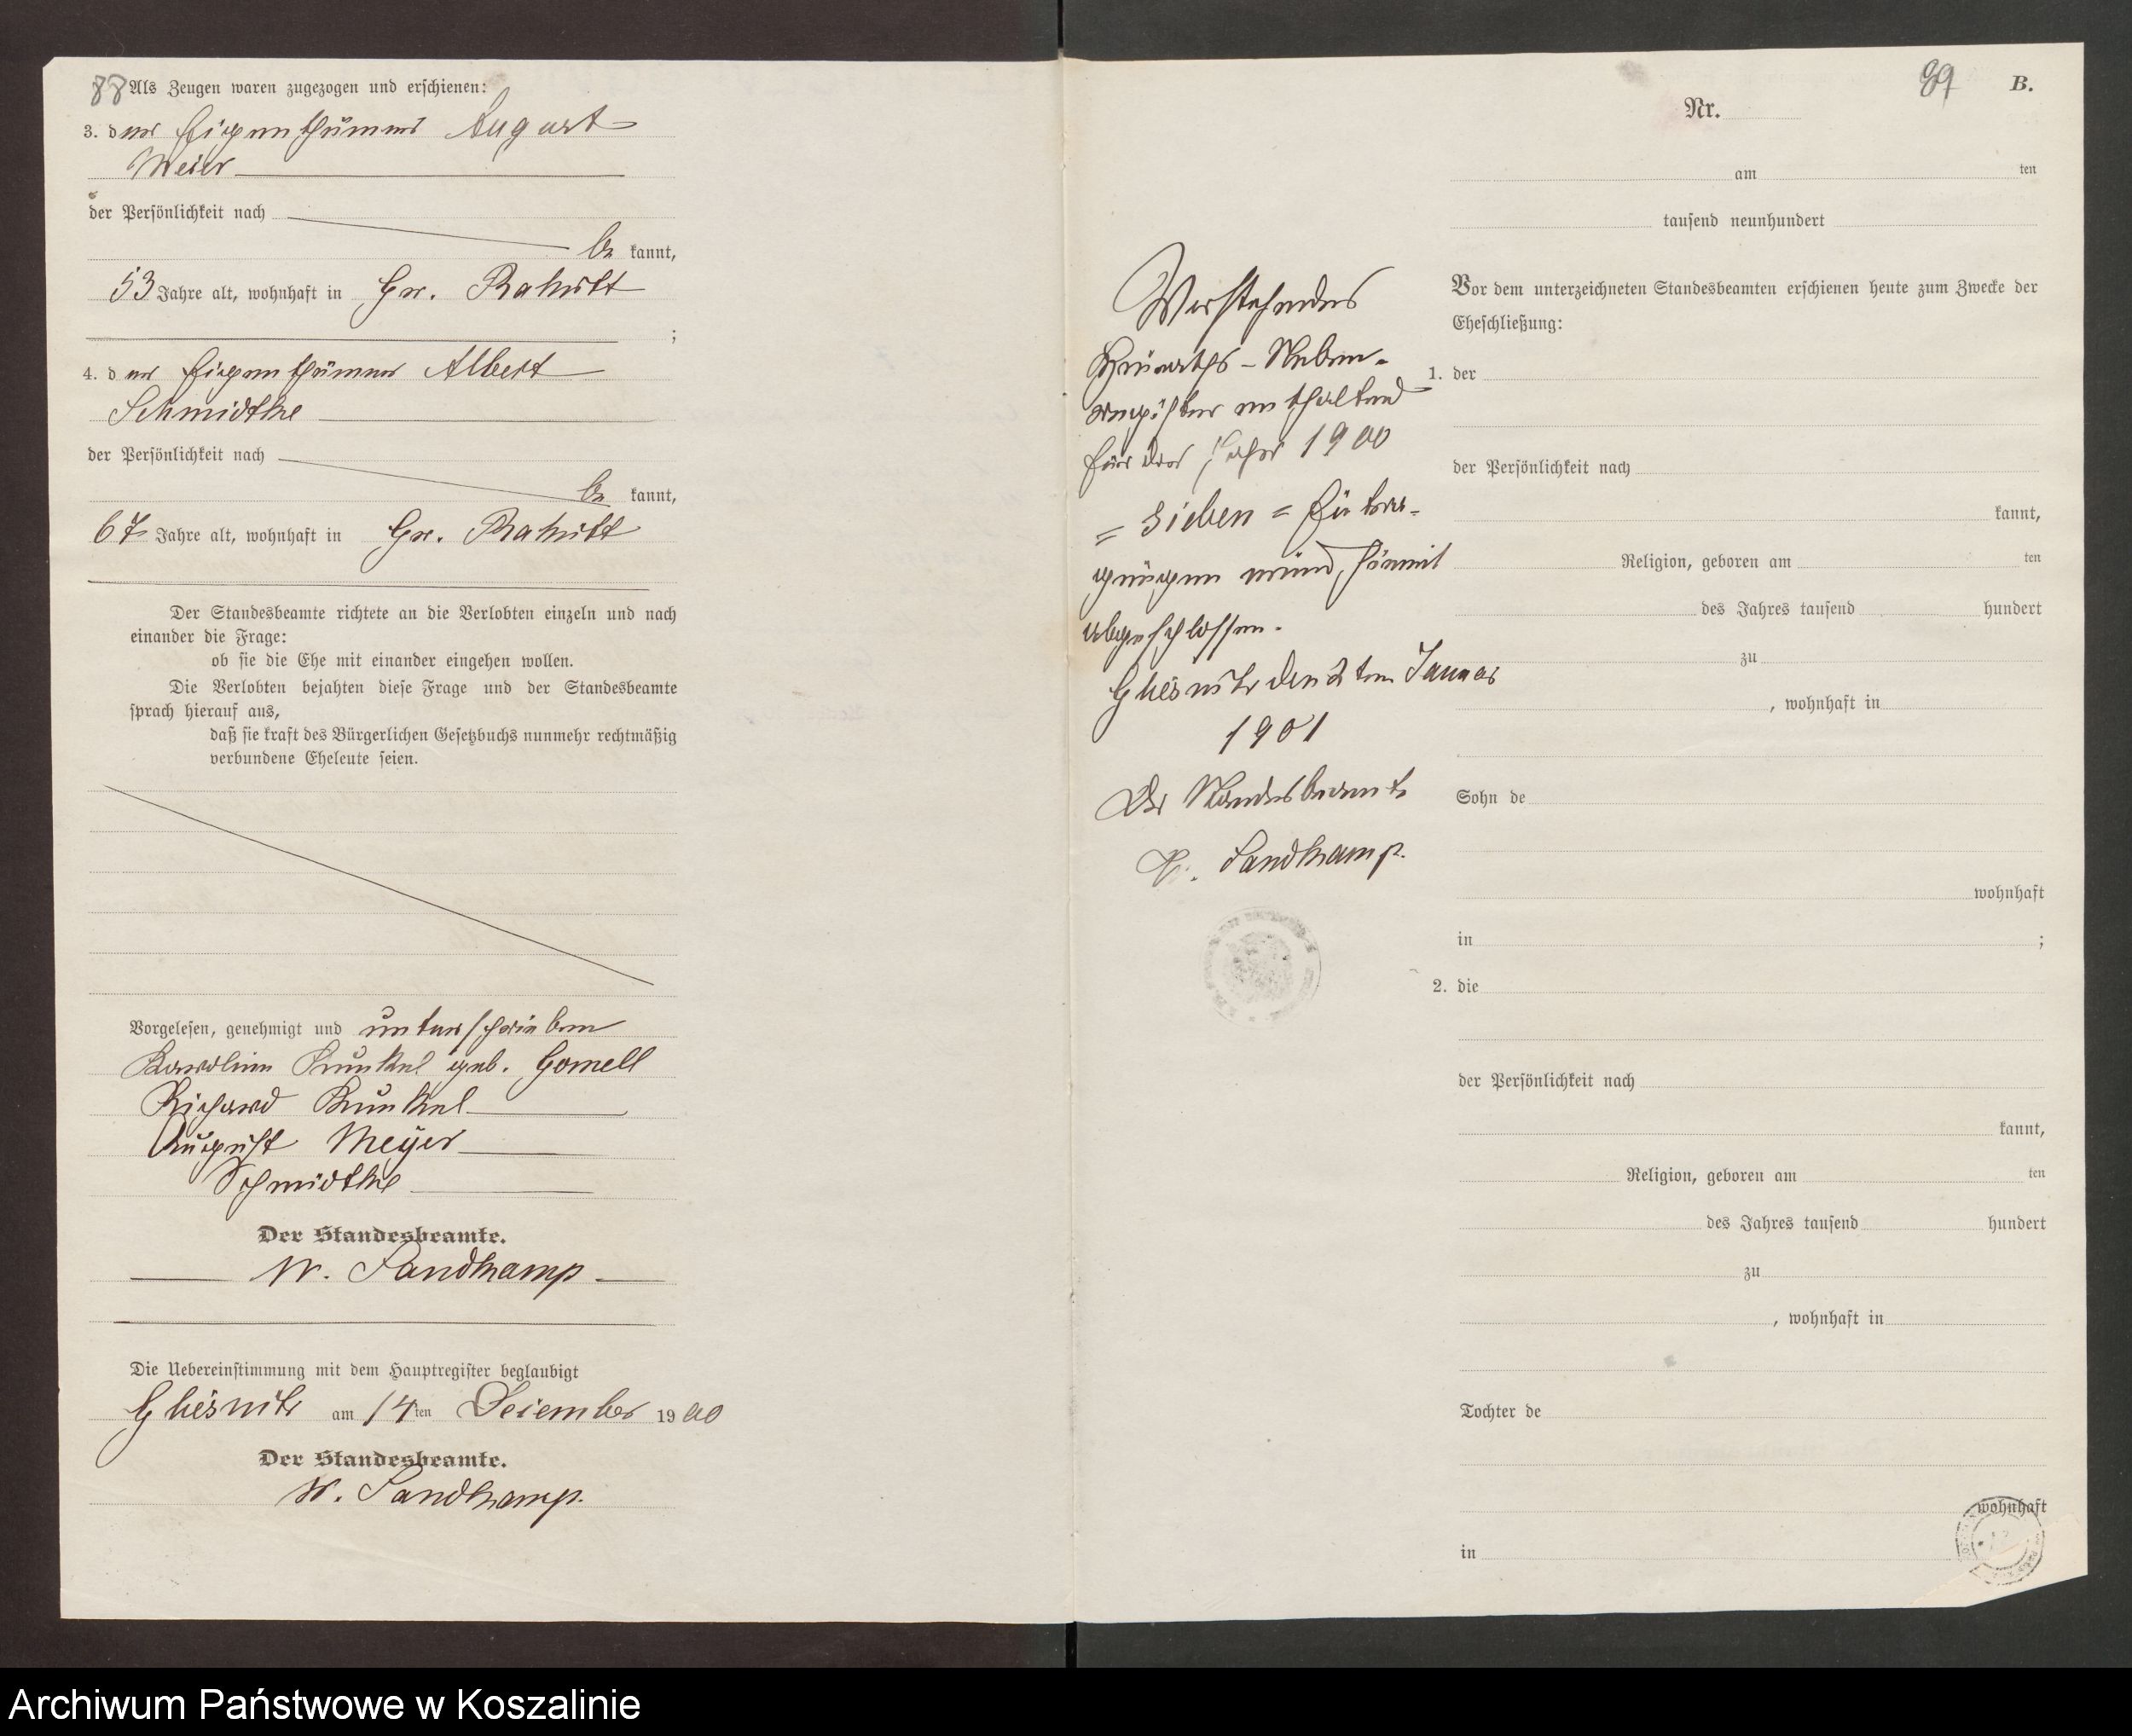 88
Als Zeugen waren zugezogen und erschienen:
3. der Eigenthümer August
Meier
der Persönlichkeit nach
be kannt,
53 Jahre alt, wohnhaft in Gr. Rakitt
;
4. der Eigenthümer Albert
Schmidtke
der Persönlichkeit nach
be kannt,
67 Jahre alt, wohnhaft in Gr. Rakitt
Der Standesbeamte richtete an die Verlobten einzeln und nach
einander die Frage:
ob sie die Ehe mit einander eingehen wollen.
Die Verlobten bejahten diese Frage und der Standesbeamte
sprach hierauf aus,
daß sie kraft des Bürgerlichen Gesetzbuchs nunmehr rechtmäßig
verbundene Eheleute seien.
Vorgelesen, genehmigt und unterschrieben
Karoline Kunkel geb. Gomell
Richard Kunkel
August Meyer
Schmidtke
Der Standesbeamte.
W. Sandkamp
Die Uebereinstimmung mit dem Hauptregister beglaubigt
Gliesnitz am 14ten Dezember 1900
Der Standesbeamte.
W. Sandkamp.
Vorstehendes
Heiraths-Neben-
register enthaltend
für das Jahr 1900
= Sieben = Eintra-
gungen wird hiermit
abgeschlossen.
Gliesnitz den 2ten Januar
1901
Der Standesbeamte
Sandkamp.
89
B.
Nr.
am ten
tausend neunhundert
Vor dem unterzeichneten Standesbeamten erschienen heute zum Zwecke der
Eheschließung:
1. der
der Persönlichkeit nach
kannt,
Religion, geboren am ten
des Jahres tausend hundert
zu
, wohnhaft in
Sohn de
wohnhaft
in ;
2. die
der Persönlichkeit nach
kannt,
Religion, geboren am ten
des Jahres tausend hundert
zu
, wohnhaft in
Tochter de
wohnhaft
in
Archiwum Państwowe w Koszalinie